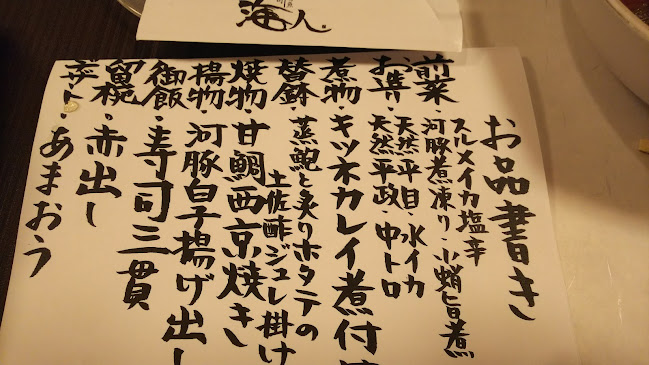 海人
お品書き
前菜・スルメイカ塩辛
河豚煮凍り・小蛸旨煮
お造り・天然平目・水イカ
天然平政・中トロ
煮物・キツネカレイ煮付
替鉢・蒸鮑と炙りホタテの
土佐酢ジュレ掛け
焼物・甘鯛西京焼き
揚物・河豚白子揚げ出し
御飯・寿司三貫
留椀・赤出し
デザート・あまおう